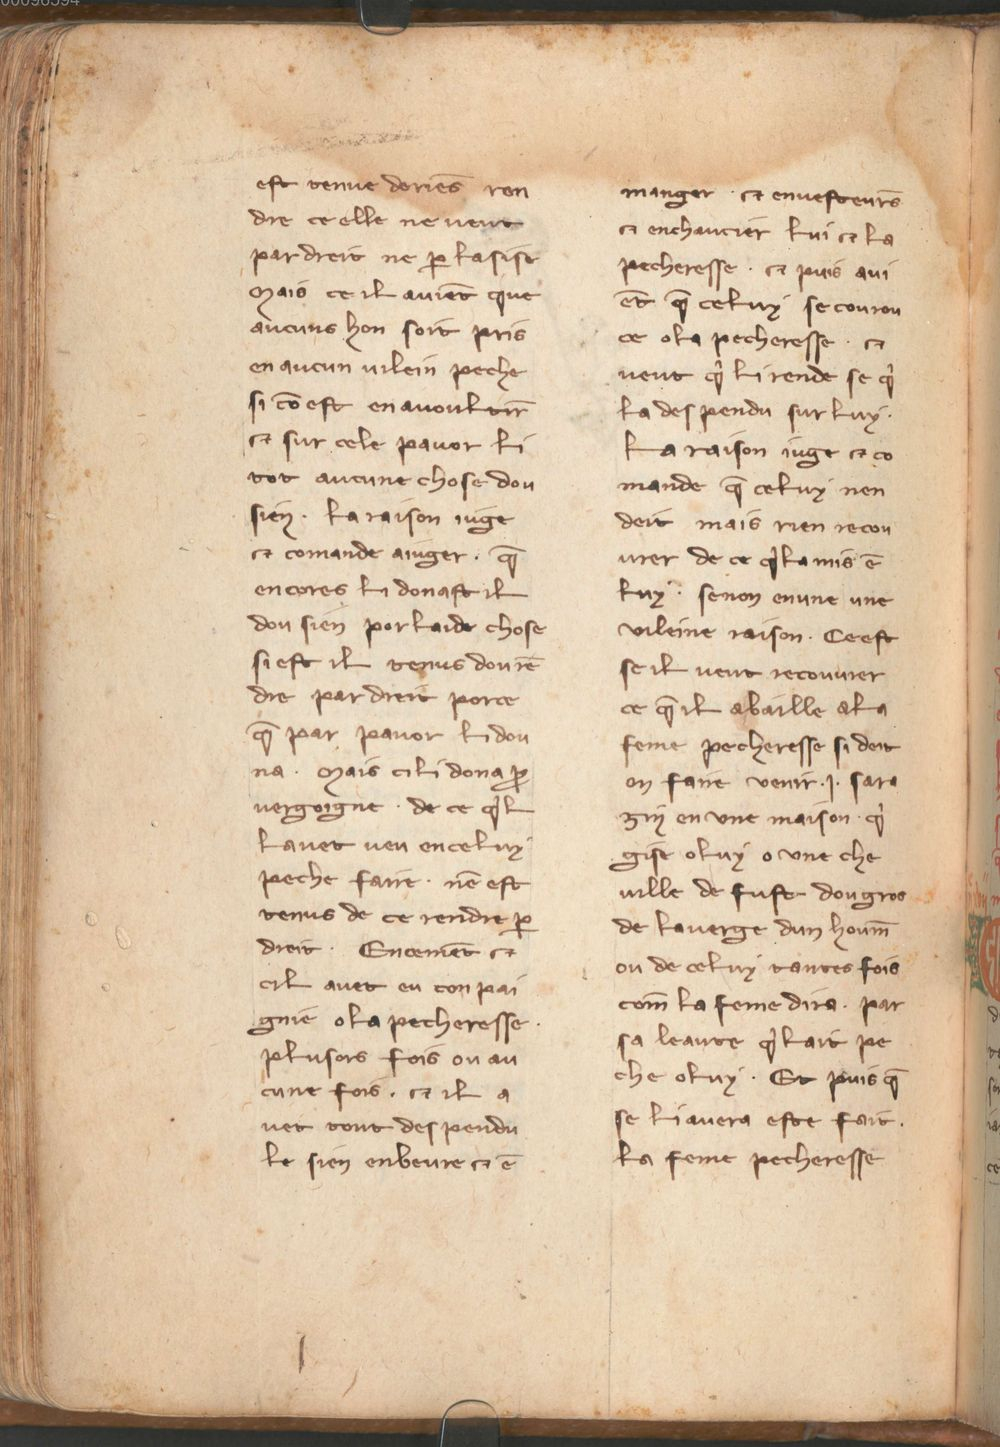 est tenue doriēs ren
dre ce elle ne veut
par dreit ne ꝑ lasise
Mais ce il auiēt que
aucuns hon soit pris
en aucun vilein peche
si cōest en auoultir̄
et sur cele pauor li
tot aucune chose dou
sien . La raison iuge
et comande aiuger . q̄
encores li donast il
dou sien por laide chose
si est il tenus dou rē
dre par dreit por ce
q̄ par pauor li dou
na . Mais ci li dona ꝑ
vergoigne . de ce qͥl
lauet veu en celuy
peche faire . nē est
tenus de ce rendre ꝑ
dreit . Encemēt et
cil auet eu conpai
gnie o la pecheresse .
plusors fois ou au
cune fois . et il a
uet tout despendu
le sien en beure et ē
manger . et en vesteurs̄
et en chaucier lui et la
pecheresse . et puis aui
ēt q̄ celuy se courou
ce o la pecheresse . et
veut qͥ li rende se qͥ
la despendu sur luy .
La raison iuge et co
mande q̄ celuy nen
deit mais rien recou
urer de ce qͥl a mis ē
luy . senon en une une
vileine raison . Ce est
se il veut recouurer
ce q̄ il a baille a la
feme pecheresse si deit
on faire venir .j. sara
zin en vne maison . qͥ
gise o luy o vne che
uille de fust dou gros
de la verge dun houm̄
ou de celuy tantes fois
com̄ la feme dira . par
sa leaute qͥl ait pe
che o luy . Et puis q̄
se li auera este fait .
La feme pecheresse